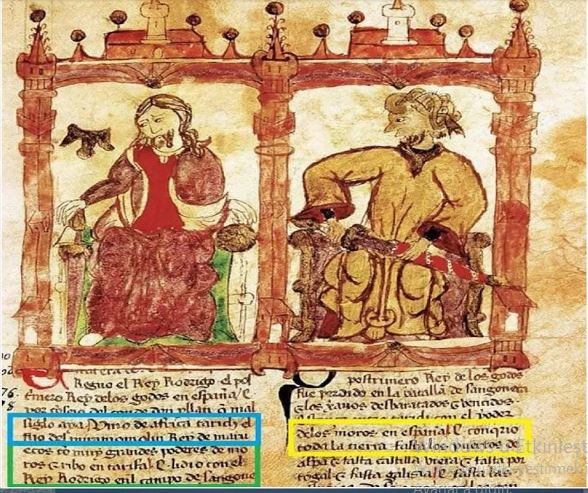 Regno el Rey Rodrigo el pos
tmero Rey delos godos en españa / E
por del conde don yllan q mal
siglo aya vino de africa tarich el
fijo del miramomolin Rey de maru
ecos co muy grandes poderes de mo
ros E ribo en tarifa / E lidio con el
Rey Rodrigo enl campo de sangone
postrimero Rey de los godos
fue perdido en la batalla de sangonera
E los xanos desbaratados E vençidos
el poder
delos moros en españa / E conqrio
toda la tierra fasta los puertos de
aspa E fasta castilla vieia E fasta por
togal E fasta galisia / E fasta las
Etkinleşt